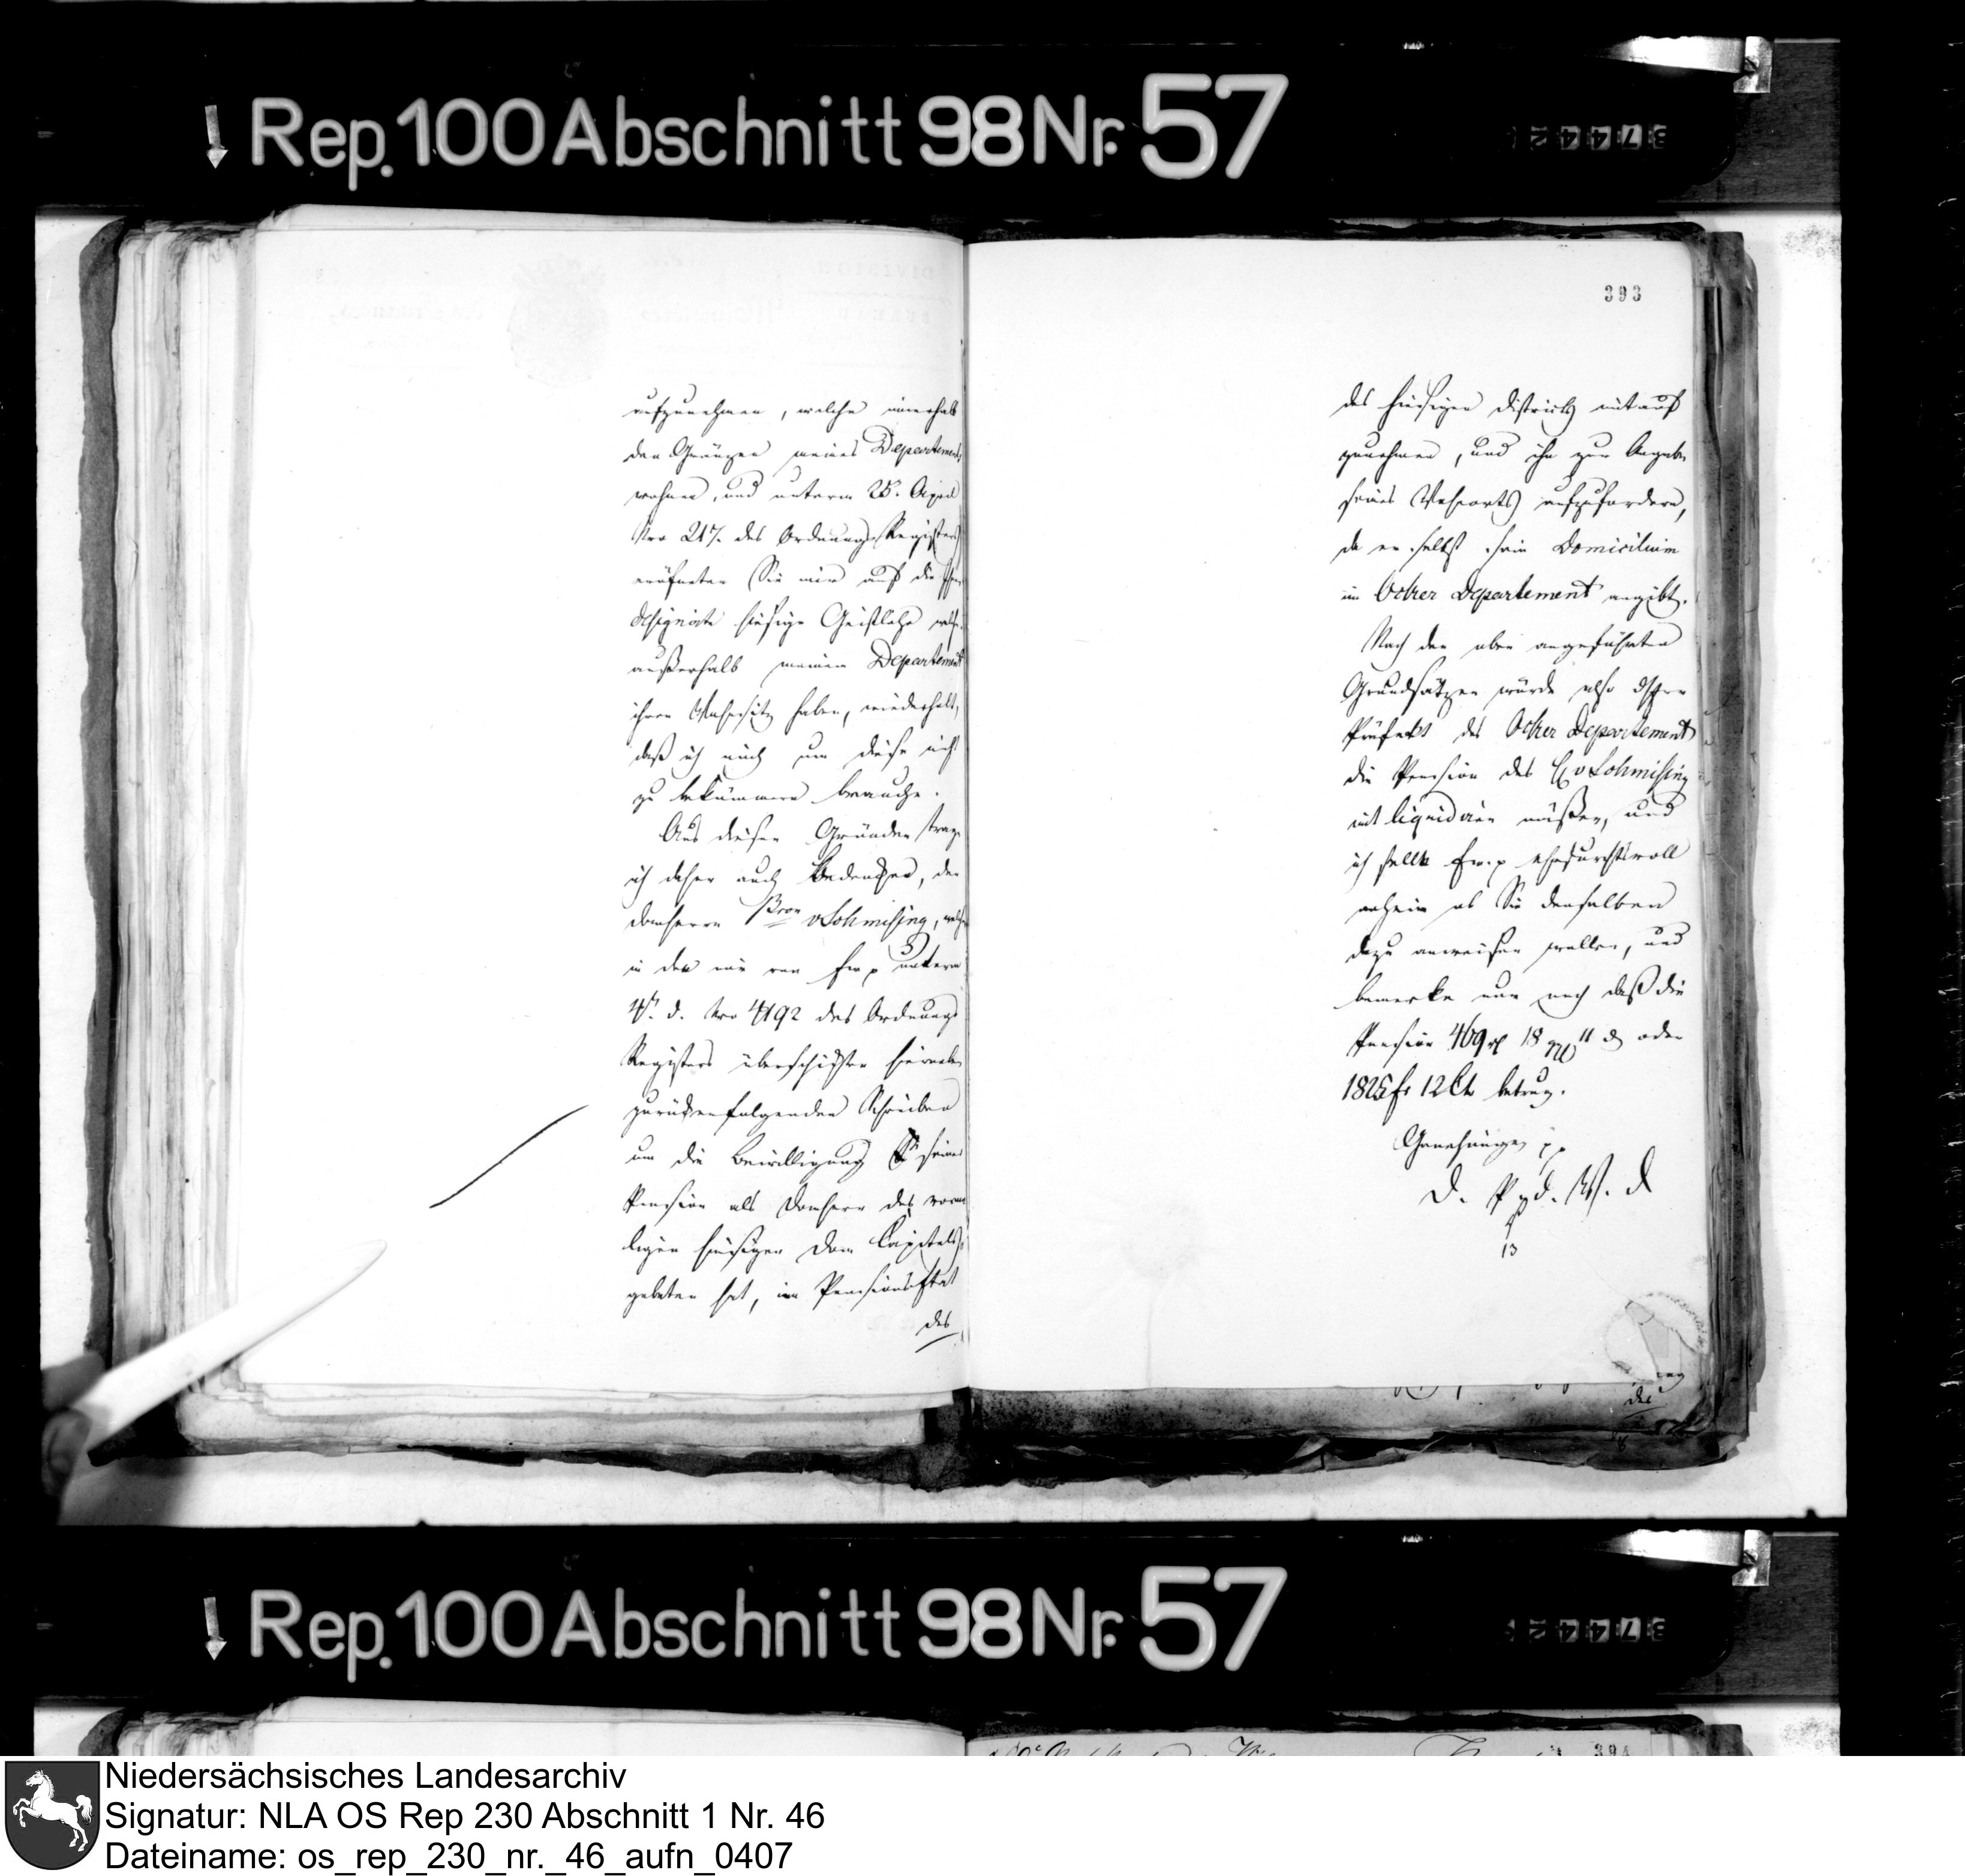 Rep. 100 Abschnitt 98 Nr. 57
393
aufzunehmen, welche innerhalb
den Gränzen meines Departements
wohnen, und unterm 25. April
Nro 217. des Ordnungs Registers
eröfneten Sie mir auf die
designirte hiesige Geistliche welche
außerhalb meinem Departement
ihren Wohnsitz haben, wiederholt,
daß ich mich um diese nicht
zu bekümmern brauche.
Aus diesen Gründen trage
ich daher auch Bedenken, den
Domherrn Bron v Schmising, welcher
in dem mir von Ew. p unterm
d. Nro 4192 des Ordnungs
Registers überschickten hierneben
zurückerfolgenden Schreiben
um die Bewilligung seiner
Pension als Domherr des vorma
ligen hiesigen Dom Capitels
gebeten hat, im Pensions Etat
des
des hiesigen Districts mit auf
zunehmen, und ihn zur Angabe
seines Wohnorts aufzufordern,
da er selbst sein Domicilium
im Ocker Departement angibt.
Nach den oben angeführten
Grundsätzen würde also der Herr
Präfekt des Ocker Departements
die Pension des v Schmising
mit liquidiren müßen, und
ich stelle Ew. p ehrfurchtsvoll
anheim ob Sie denselben
dazu anweisen wollen, und
bemerke nur noch daß die
Pension 469 rt 18 ggl 11 d oder
1825 fr 12 Ct betrug.
Genehmigen pp
D. P. d. W. D
13
des
Rep. 100 Abschnitt 98 Nr. 57
394
Niedersächsisches Landesarchiv
Signatur: NLA OS Rep 230 Abschnitt 1 Nr. 46
Dateiname: os_rep_230_nr._46_aufn_0407